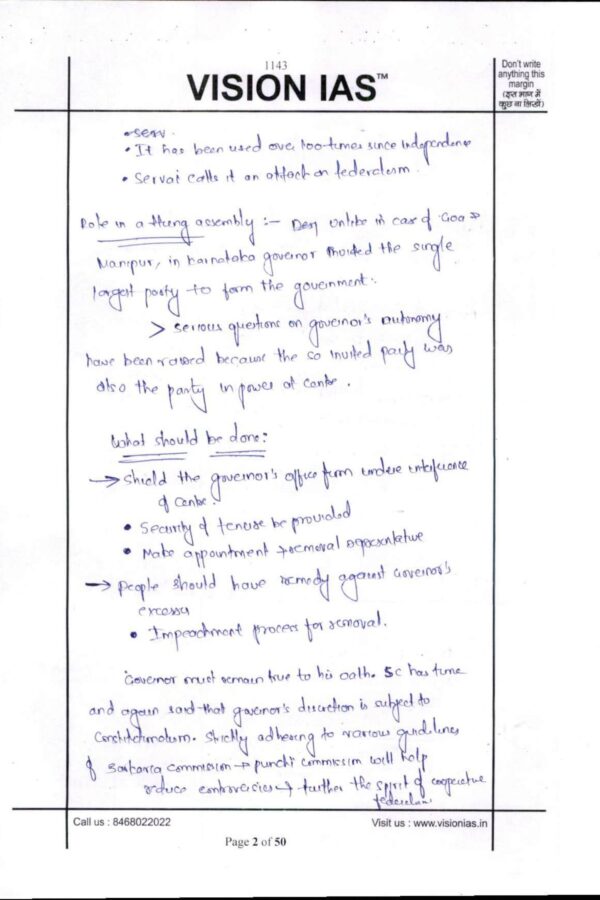 1143
VISION IAS™
Don't write
anything this
margin
(इस भाग में
कुछ ना लिखें)
• It has been used over 100 times since Independence
• Servai calls it an attack on federalism.
Role in a Hung assembly :- Unlike in case of Goa &
Manipur, in Karnataka governor invited the single
largest party to form the government.
> Serious questions on governor's autonomy
have been raised because the so invited party was
also the party in power at centre.
What should be done:
→ Shield the governor's office from undue interference
of Centre.
• Security of tenure be provided
• Make appointment + removal representative
→ People should have remedy against Governor's
excesses
• Impeachment process for removal.
Governor must remain true to his oath. SC has time
and again said that governor's discretion is subject to
Constitutionalism. Strictly adhering to various guidelines
of Sarkaria commission → punchi commission will help
reduce controversies → further the spirit of cooperative
federalism
Call us : 8468022022
Visit us : www.visionias.in
Page 2 of 50